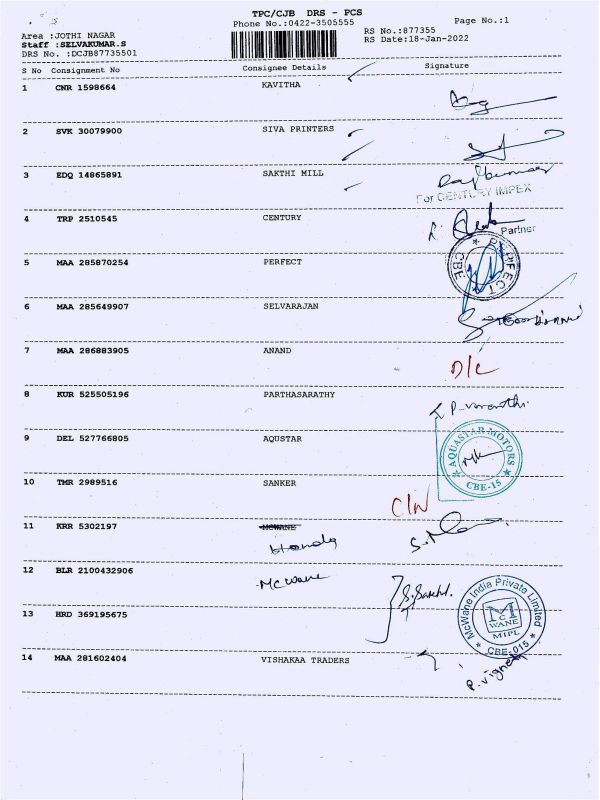 TPC/CJB DRS - PCS
Phone No.:0422-3505555
Page No.:1
Area :JOTHI NAGAR
RS No.:877355
Staff :SELVAKUMAR.S
RS Date:18-Jan-2022
DRS No. :DCJB87735501
S No Consignment No Consignee Details Signature
1 CNR 1598664 KAVITHA
2 SVK 30079900 SIVA PRINTERS
3 EDQ 14865891 SAKTHI MILL
For CENTURY IMPEX
4 TRP 2510545 CENTURY
Partner
5 MAA 285870254 PERFECT
PERFECT CBE
6 MAA 285649907 SELVARAJAN
7 MAA 286883905 ANAND D/C
8 KUR 525505196 PARTHASARATHY
9 DEL 527766805 AQUSTAR
AQUASTAR MOTORS CBE-15
10 TMR 2989516 SANKER
11 KRR 5302197 MCWANE
Honda
12 BLR 2100432906 McWane
13 HRD 369195675
McWane India Private Limited
MC WANE
MIPL
CBE-015
14 MAA 281602404 VISHAKAA TRADERS
P. Vignesh